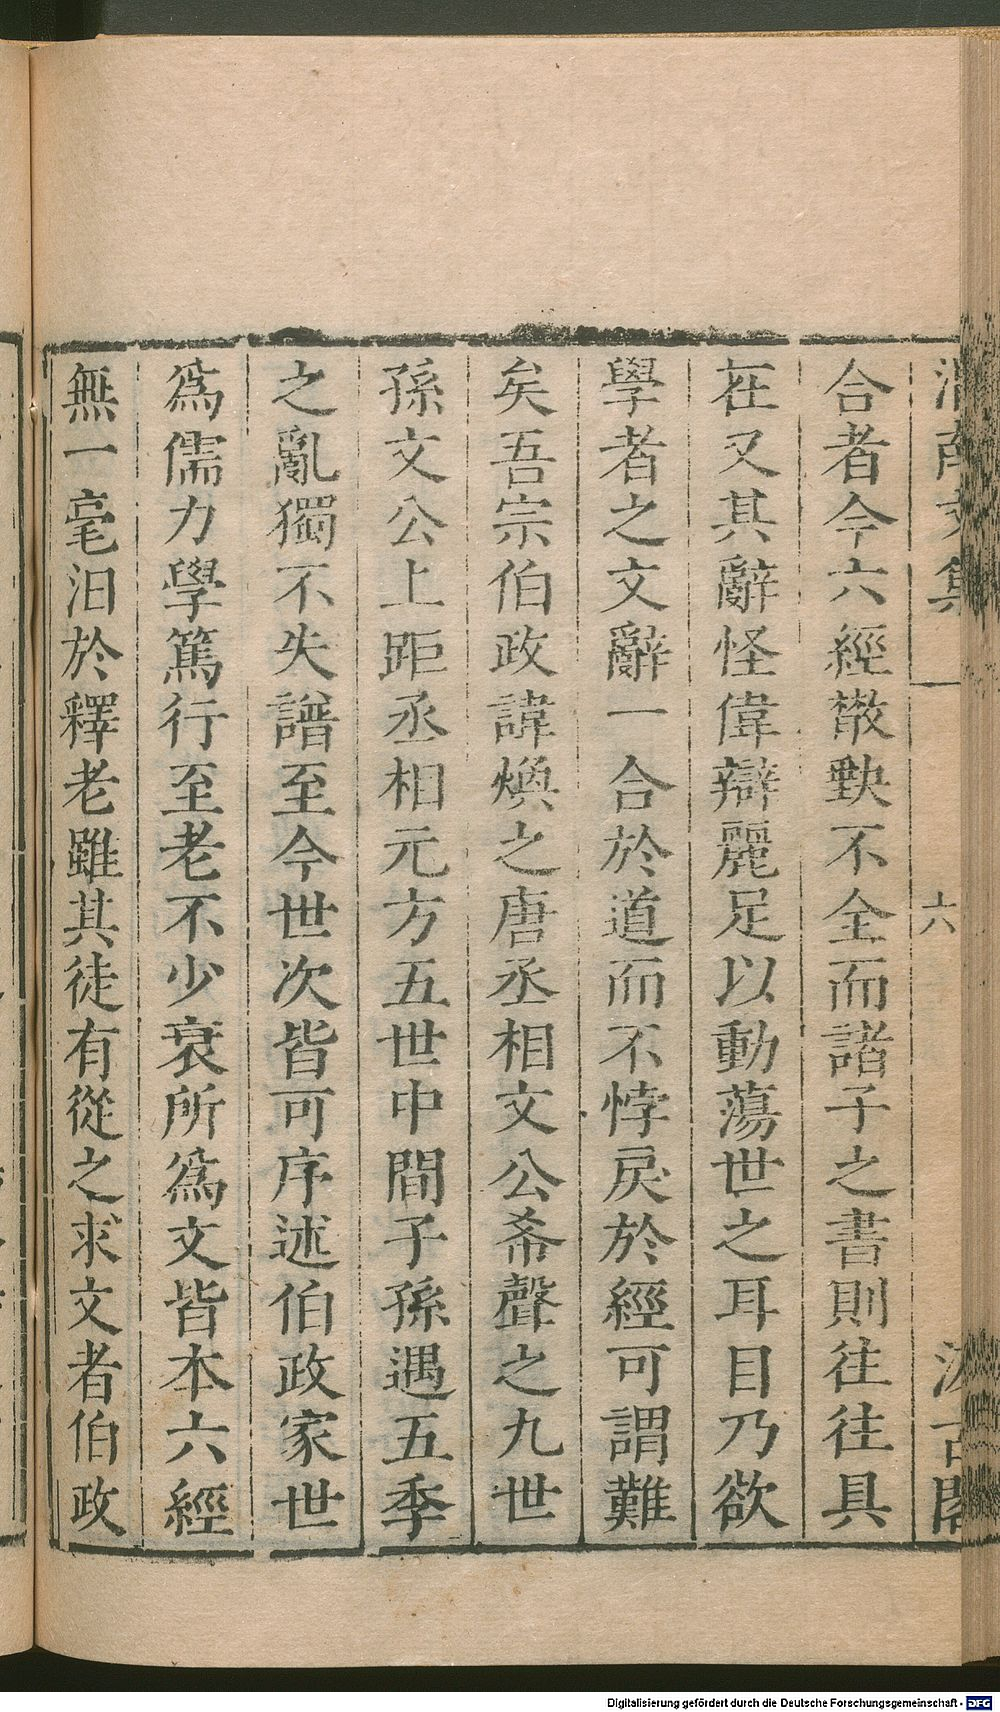 渭南文集
六
汲古閣
合者今六經散缺不全而諸子之書則往往具
在又其辭怪偉辯麗足以動蕩世之耳目乃欲
學者之文辭一合於道而不悖戾於經可謂難
矣吾宗伯政諱煥之唐丞相文公希聲之九世
孫文公上距丞相元方五世中間子孫遇五季
之亂獨不失譜至今世次皆可序述伯政家世
爲儒力學篤行至老不少衰所爲文皆本六經
無一毫汩於釋老雖其徒有從之求文者伯政
Digitalisierung gefördert durch die Deutsche Forschungsgemeinschaft - DFG